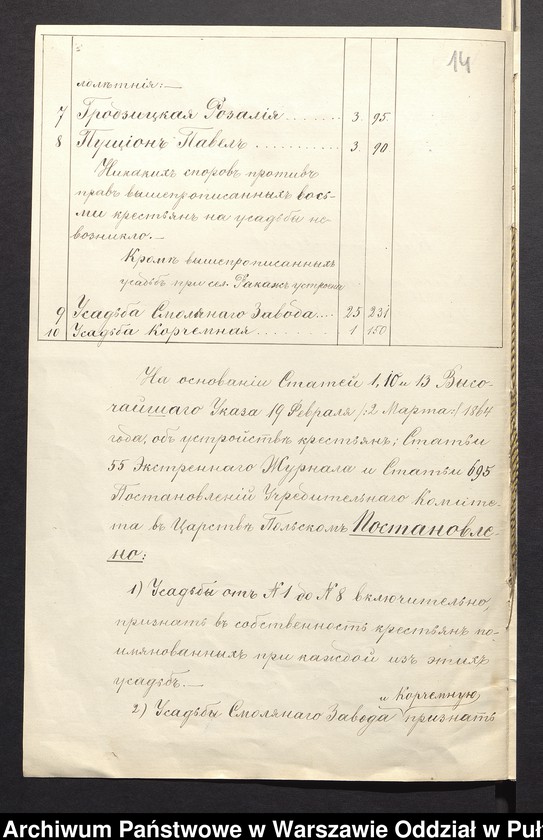 14
лолѣтнія:—
7 Гродзицкая Розалія ........ 3. 95
8 Пуціонъ Павелъ ............ 3. 90
Никакихъ споровъ противъ
правъ вышепрописанныхъ вось-
ми крестьянъ на усадьбы не
возникло.—
Кромѣ вышепрописанныхъ
усадьбъ при сел.
9 Усадьба Смолянаго Завода.... 25 231
10 Усадьба Корчемная .......... 1 150
На основаніи Статей 1, 10 и 13 Высо-
чайшаго Указа 19 Февраля /:2 Марта:/ 1864
года, объ устройствѣ крестьянъ; Статьи
55 Экстреннаго Журнала и Статьи 695
Постановленій Учредительнаго Комите-
та въ Царствѣ Польскомъ Постановле-
но:
1) Усадьбы отъ N 1 до N 8 включительно,
признать въ собственность крестьянъ по-
имянованныхъ при каждой изъ этихъ
усадьбъ.—
и Корчемную
2) Усадьбы Смолянаго Завода признать
Archiwum Państwowe w Warszawie Oddział w Puł